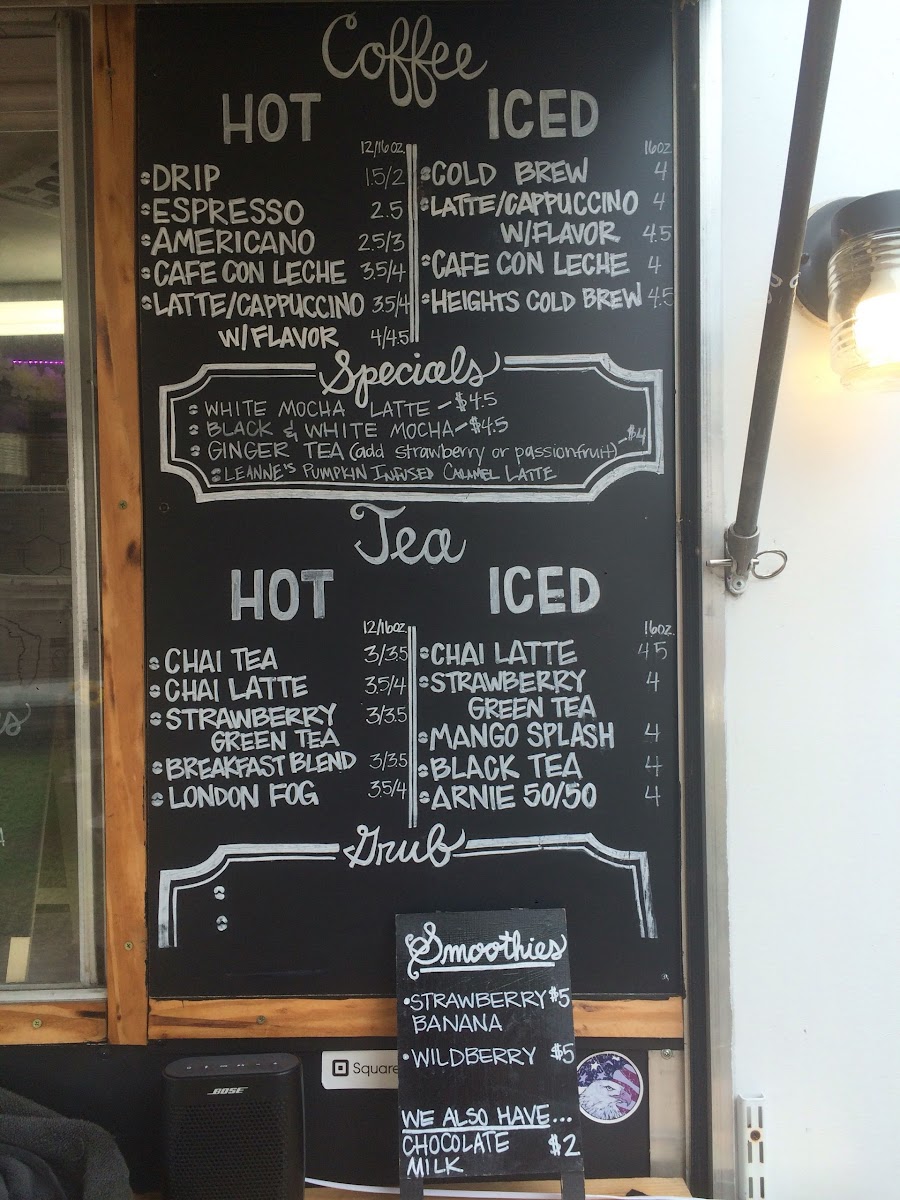 Coffee
HOT
12/16oz
DRIP 1.5/2
ESPRESSO 2.5
AMERICANO 2.5/3
CAFE CON LECHE 3.5/4
LATTE/CAPPUCCINO 3.5/4
W/FLAVOR 4/4.5
ICED
16oz
COLD BREW 4
LATTE/CAPPUCCINO 4
W/FLAVOR 4.5
CAFE CON LECHE 4
HEIGHTS COLD BREW 4.5
Specials
WHITE MOCHA LATTE - $4.5
BLACK & WHITE MOCHA - $4.5
GINGER TEA (add strawberry or passionfruit) - $4
LEANNE'S PUMPKIN INFUSED CALAMEL LATTE
Tea
HOT
12/16oz
CHAI TEA 3/3.5
CHAI LATTE 3.5/4
STRAWBERRY 3/3.5
GREEN TEA
BREAKFAST BLEND 3/3.5
LONDON FOG 3.5/4
ICED
16oz.
CHAI LATTE 4.5
STRAWBERRY 4
GREEN TEA
MANGO SPLASH 4
BLACK TEA 4
ARNIE 50/50 4
Grub
Smoothies
•STRAWBERRY $5
BANANA
•WILDBERRY $5
WE ALSO HAVE...
CHOCOLATE $2
MILK
Square
BOSE